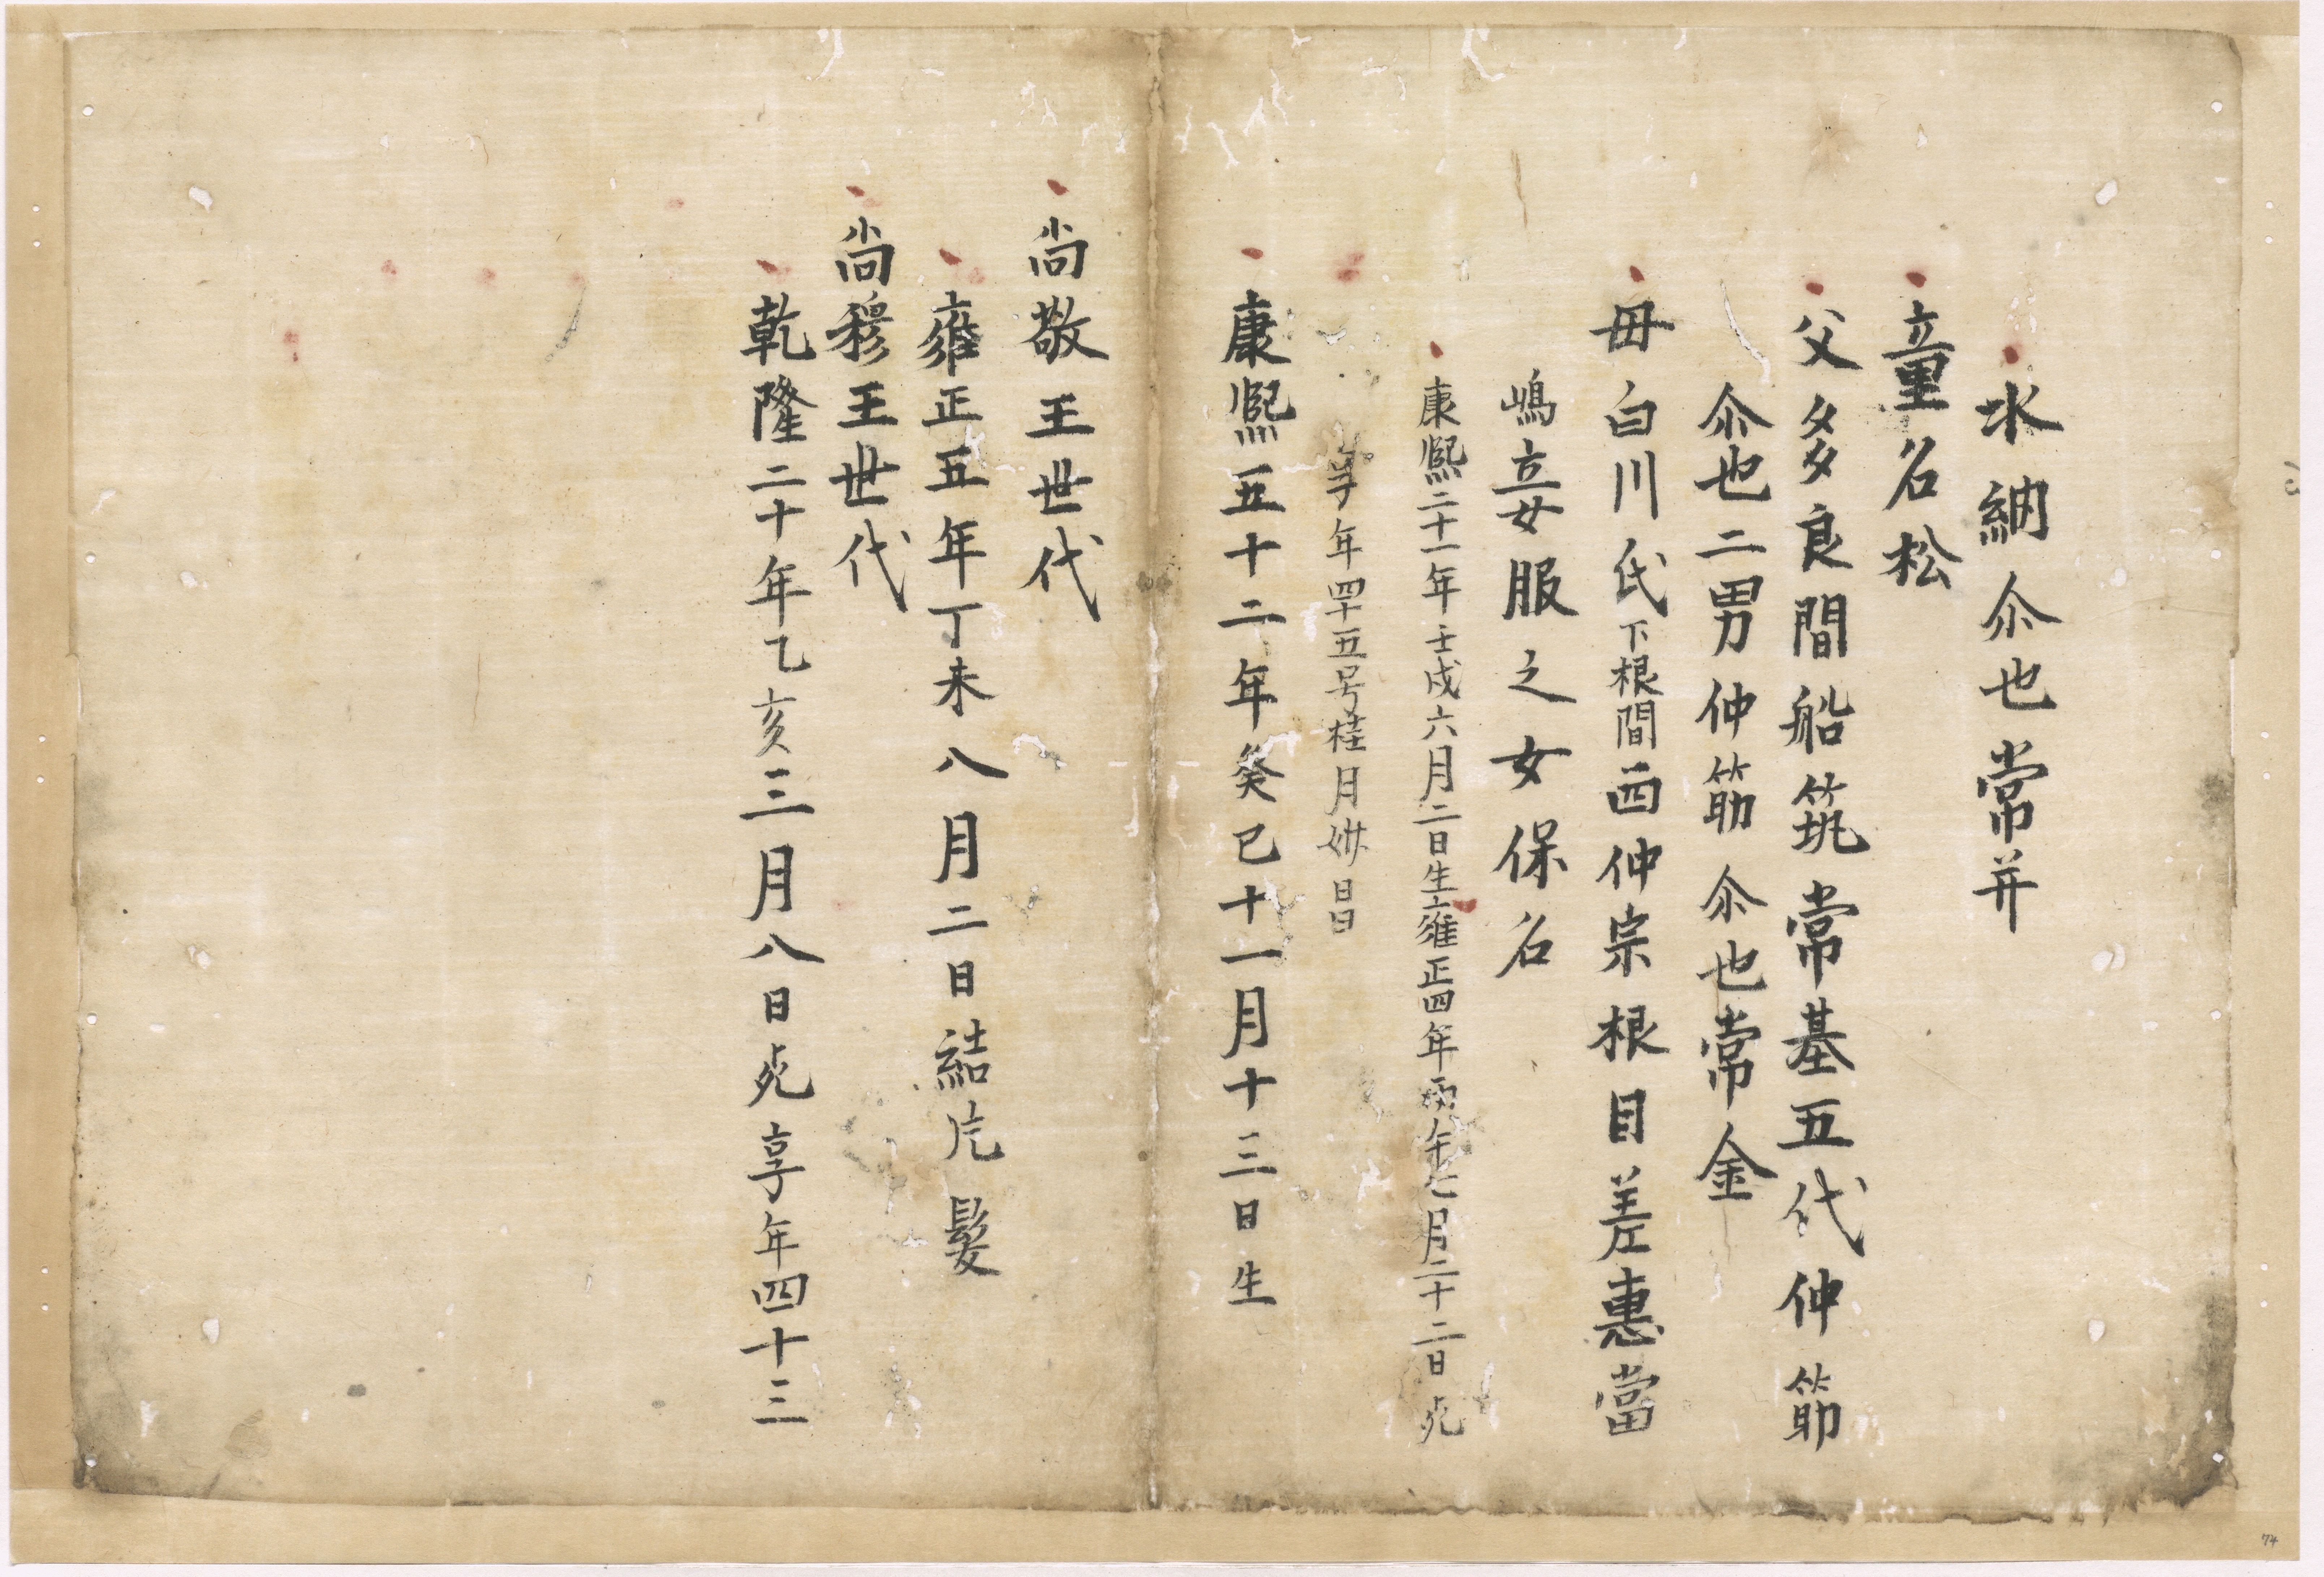 水納尒也常并
童名松
父多良間船筑常基五代仲筋
尒也二男仲筋尒也常金
母白川氏下根間西仲宗根目差惠當
嶋妾服之女保名
康熙二十一年壬戌六月二日生雍正四年丙午七月二十二日死
享年四十五号桂月妙昌
康熙五十二年癸巳十一月十三日生
尚敬王世代
雍正五年丁未八月二日結片髮
尚穆王世代
乾隆二十年乙亥三月八日死享年四十三
74